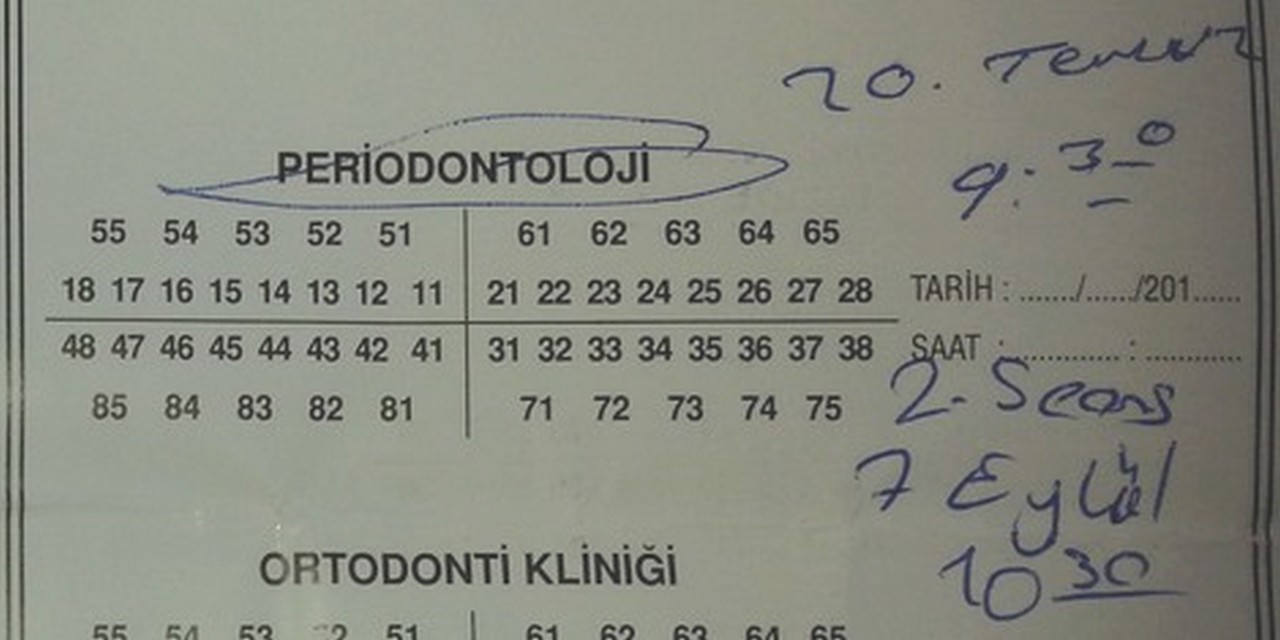 20. Temmuz
9:30
PERİODONTOLOJİ
55 54 53 52 51 61 62 63 64 65
18 17 16 15 14 13 12 11 21 22 23 24 25 26 27 28 TARİH : ......./....../201......
48 47 46 45 44 43 42 41 31 32 33 34 35 36 37 38 SAAT : ............... : ..............
85 84 83 82 81 71 72 73 74 75
2. Seans
7 Eylül
10 30
ORTODONTİ KLİNİĞİ
55 54 53 52 51 61 62 63 64 65